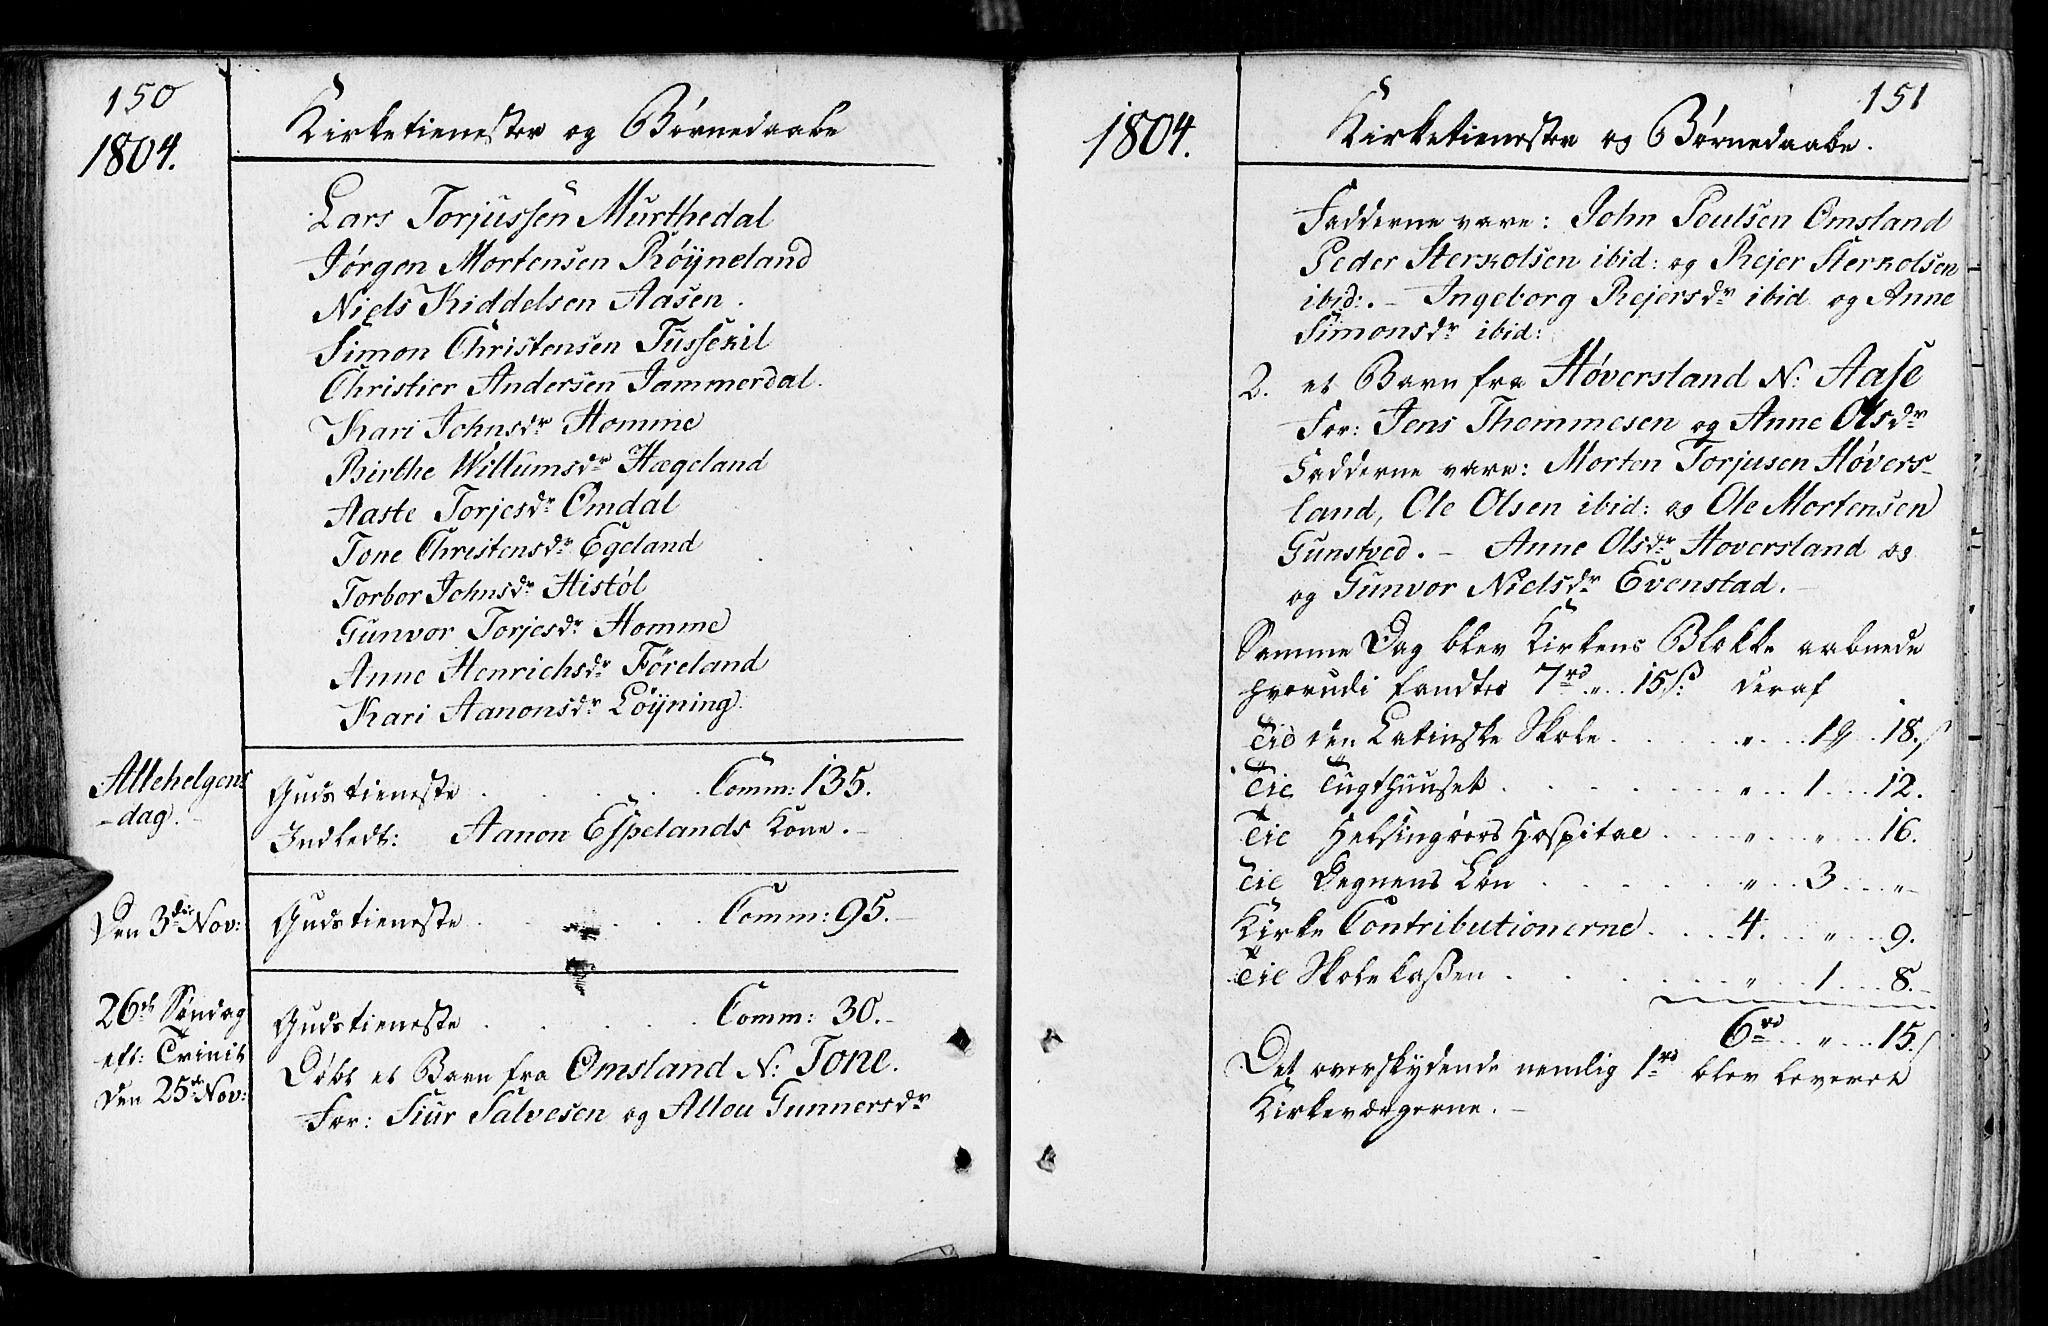 150
1804.
Kirketienester og Börnedaabe
Lars Torjussen Murthedal
Jørgen Mortensen Røÿneland
Niels Kiddelsen Aasen.
Simon Christensen Tussekil
Christier Andersen Jammerdal.
Kari Johnsdr Homme
Birthe Willumsdr Hægeland
Aaste Torjesdr Omdal
Tone Christensdr Egeland
Torbor Johnsdr Histöl
Gunvor Torjesdr Homme
Anne Henrichsdr Föreland
Kari Aanonsdr Löÿning.
Allehelgens
-dag.-
Gudstieneste . . . . . Comm: 135.
Indledt: Aanon Espelands Kone.-
Den 3die Nov:
Gudstieneste . . . . . Comm: 95.-
26de Söndag
eft: Trinit
den 25de Nov:
Gudstieneste . . . . . Comm: 30.-
Döbt et Barn fra Omsland N: Tone.
For: Siur Salvesen og Allou Gunnersdr
151
1804.
Kirketienester og Börnedaabe.
Fadderne vare: John Poulsen Omsland
Peder Sterkolsen ibid: og Rejer Sterkolsen
ibid:.- Ingeborg Rejersdr ibid og Anne
Simonsdr ibid:
2. et Barn fra Høversland N: Aase
For: Jens Thommesen og Anne Olsdr
Fadderne vare: Morten Torjusen Hövers-
land, Ole Olsen ibid: og Ole Mortensen
Gunstved.- Anne Olsdr Hoversland og
og Gunvor Nielsdr Evenstad.-
Samme Dag blev Kirkens Blokke aabnede
hvorudi fandtes 7rd „ 15s: deraf
Til den Latinske Skole . . . . „ . . 19 . . 18.s
Til Tugthuuset . . . . . . „ . . 1 . . 12.
Til Helsingöers Hospital . . . „ . . „ . . 16.
Til Degnens Lön . . . . . „ . . 3 . . „
Kirke Contributionerne . . . 4. . . „ . . 9.
Til Skole Cassen . . . . . „ . . 1 . . 8.-
6rd . . „ . . 15.s
Det overskydende nemlig 1rd blev leveret
Kirkeværgerne.-